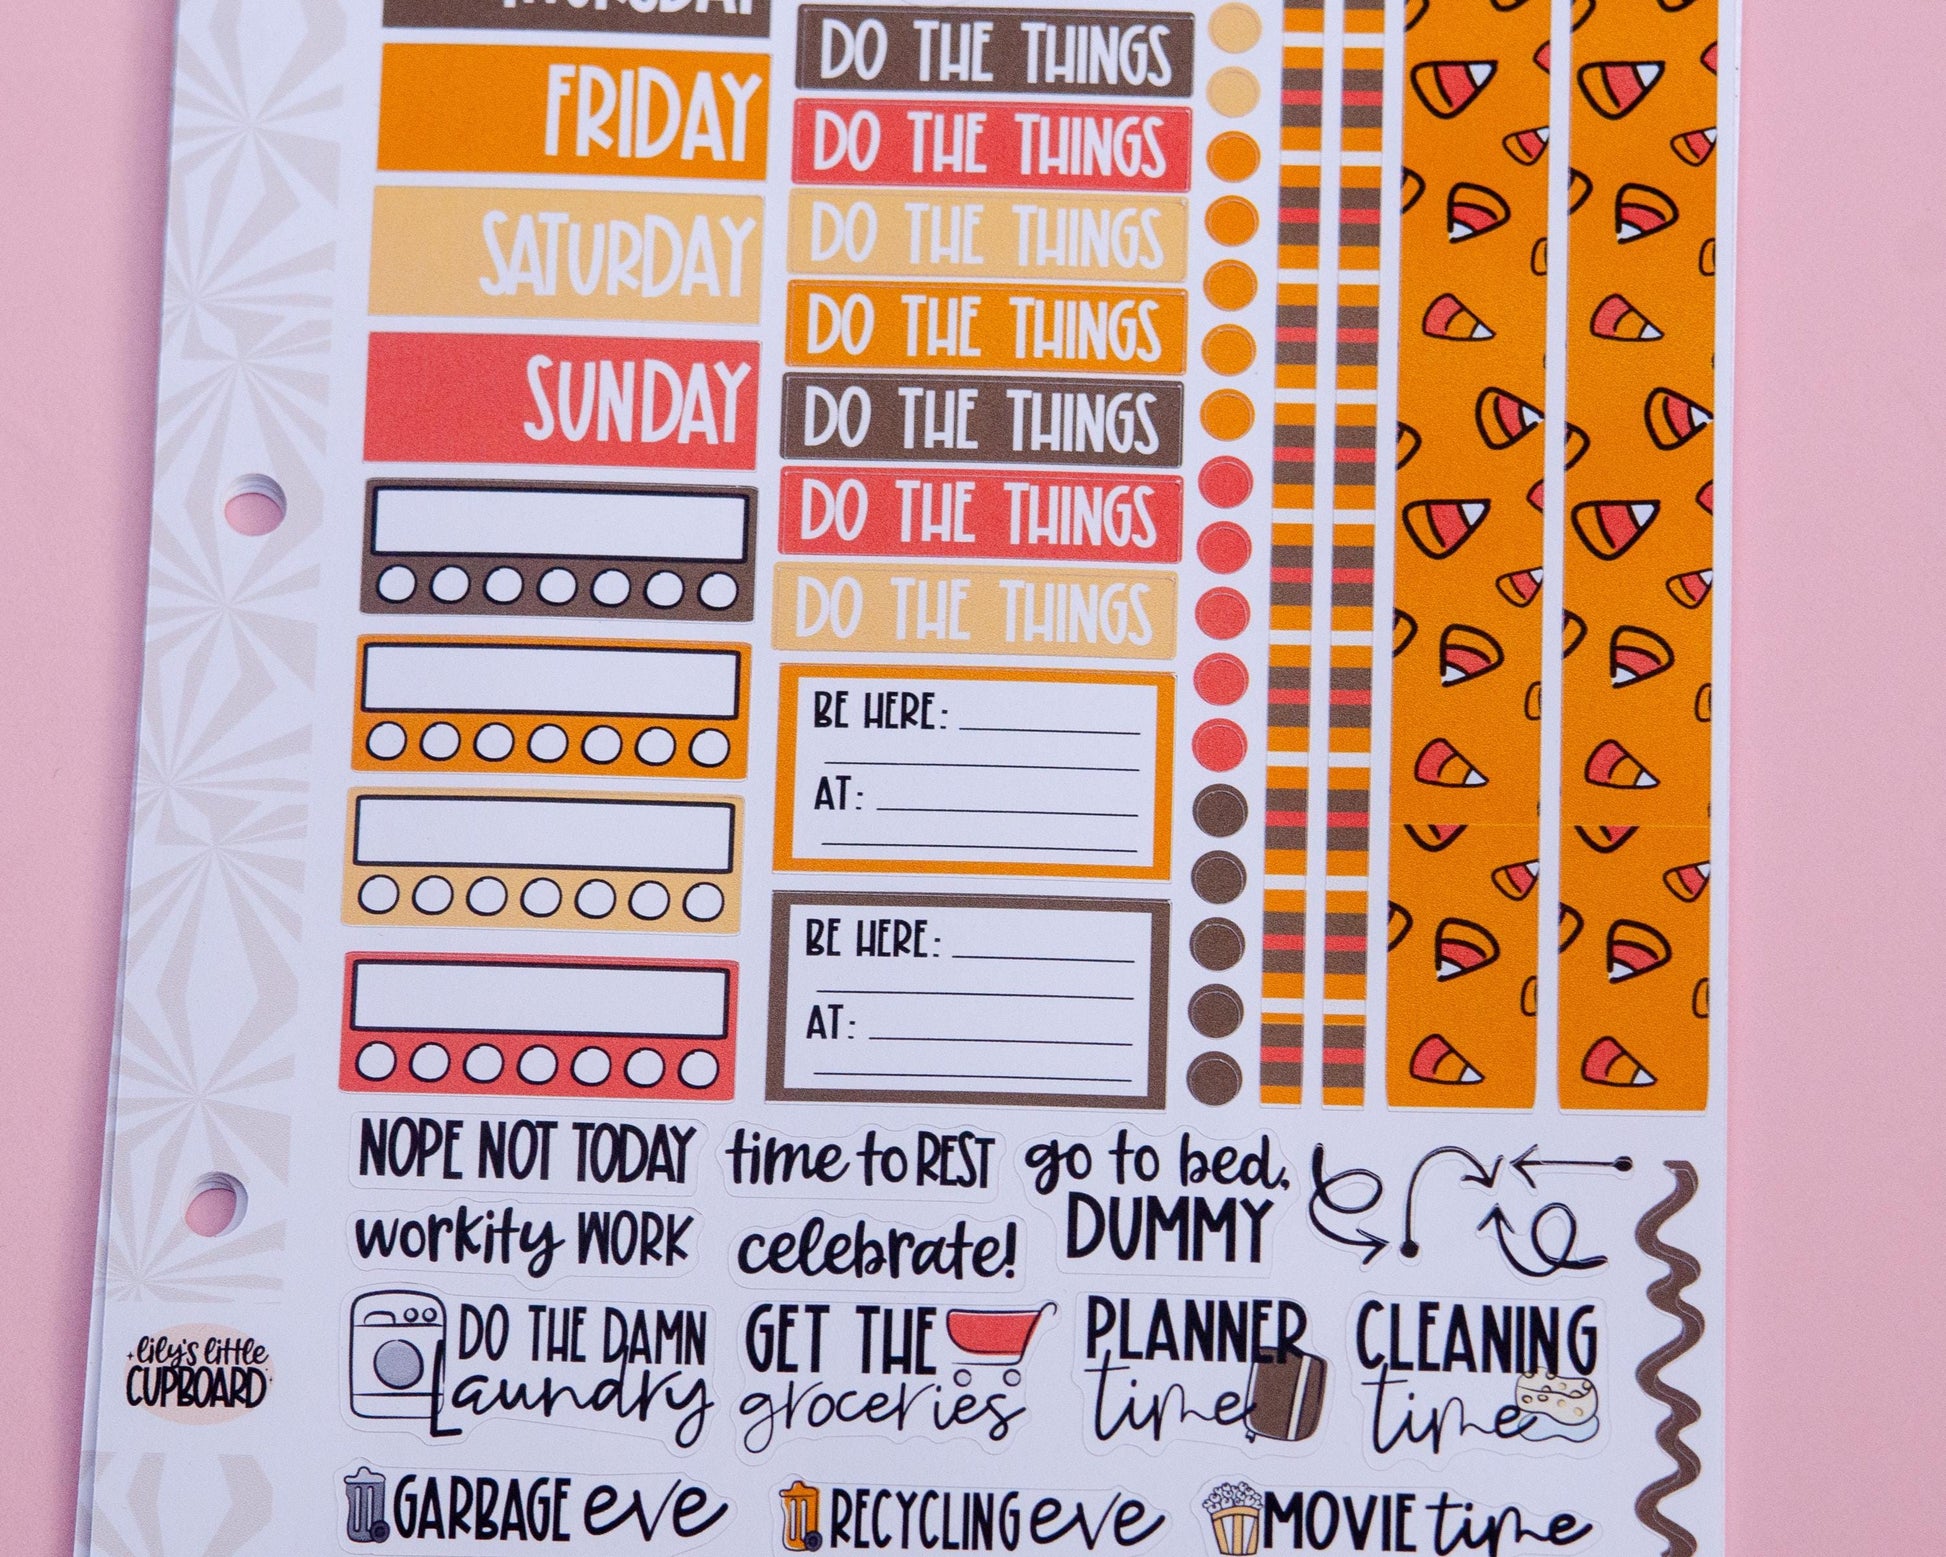 THURSDAY
FRIDAY
SATURDAY
SUNDAY
DO THE THINGS
DO THE THINGS
DO THE THINGS
DO THE THINGS
DO THE THINGS
DO THE THINGS
DO THE THINGS
BE HERE:
AT:
BE HERE:
AT:
NOPE NOT TODAY
time to REST
go to bed,
DUMMY
workity WORK
celebrate!
DO THE DAMN
Laundry
GET THE
groceries
PLANNER
time
CLEANING
time
lily's little
CUPBOARD
GARBAGE eve
RECYCLING eve
MOVIE time